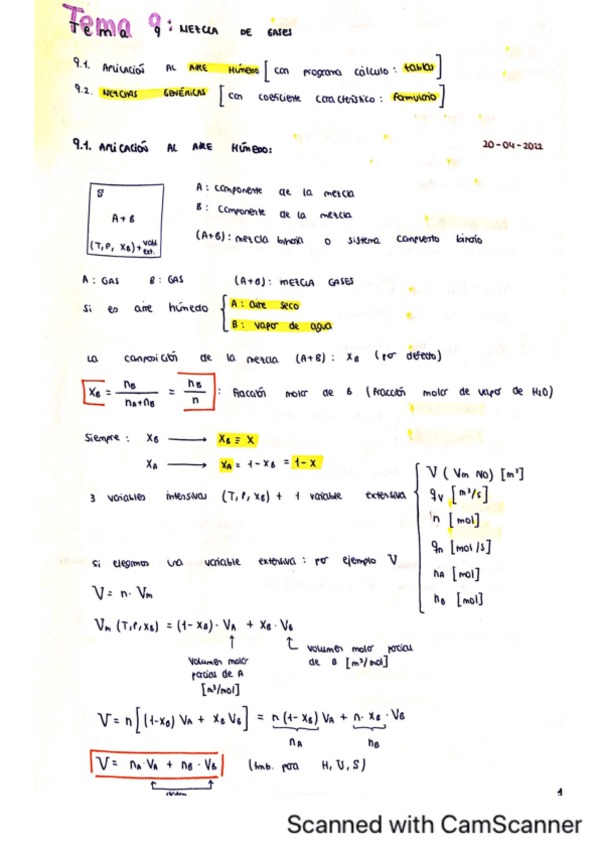 Tema 9: MEZCLA DE GASES
9.1. APLICACIÓN AL AIRE HÚMEDO [con programa cálculo: tablas]
9.2. MEZCLAS GENÉRICAS [con coeficiente característico: formulario]
9.1. APLICACIÓN AL AIRE HÚMEDO:
20-04-2022
A: componente de la mezcla
B: componente de la mezcla
A + B
(A+B): mezcla binaria o sistema compuesto binario
(T, P, XB) + vabl. ext.
A: GAS B: GAS (A+B): MEZCLA GASES
Si es aire húmedo { A: aire seco
B: vapor de agua
La composición de la mezcla (A+B): XB (por defecto)
XB = nB / (nA+nB) = nB / n : fracción molar de B (fracción molar de vapor de H2O)
Siempre: XB → XB ≡ X
XA → XA = 1 - XB = 1 - X
3 variables intensivas (T, P, XB) + 1 variable extensiva
V (Vm NO) [m³]
qv [m³/s]
n [mol]
qn [mol/s]
nA [mol]
nB [mol]
Si elegimos una variable extensiva: por ejemplo V
V = n · Vm
Vm (T, P, XB) = (1 - XB) · VA + XB · VB
Volumen molar parcial de A [m³/mol]
Volumen molar parcial de B [m³/mol]
V = n [(1-XB) VA + XB VB] = n (1-XB) VA + n · XB · VB
nA nB
V = nA · VA + nB · VB (tmb. para H, U, S)
1
Scanned with CamScanner